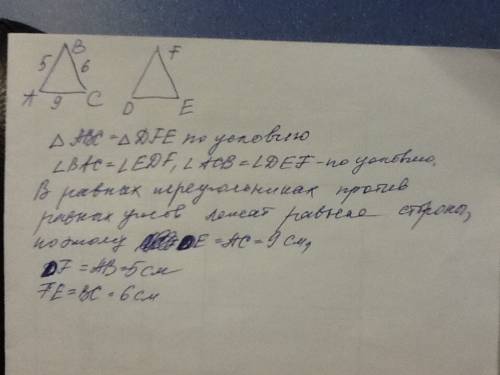 B F
5 6
A 9 C D E
△ ABC = △ DFE по условию
∠BAC = ∠EDF, ∠ACB = ∠DEF - по условию.
В равных треугольниках против
равных углов лежат равные стороны,
поэтому DE = AC = 9 см,
DF = AB = 5 см
FE = BC = 6 см